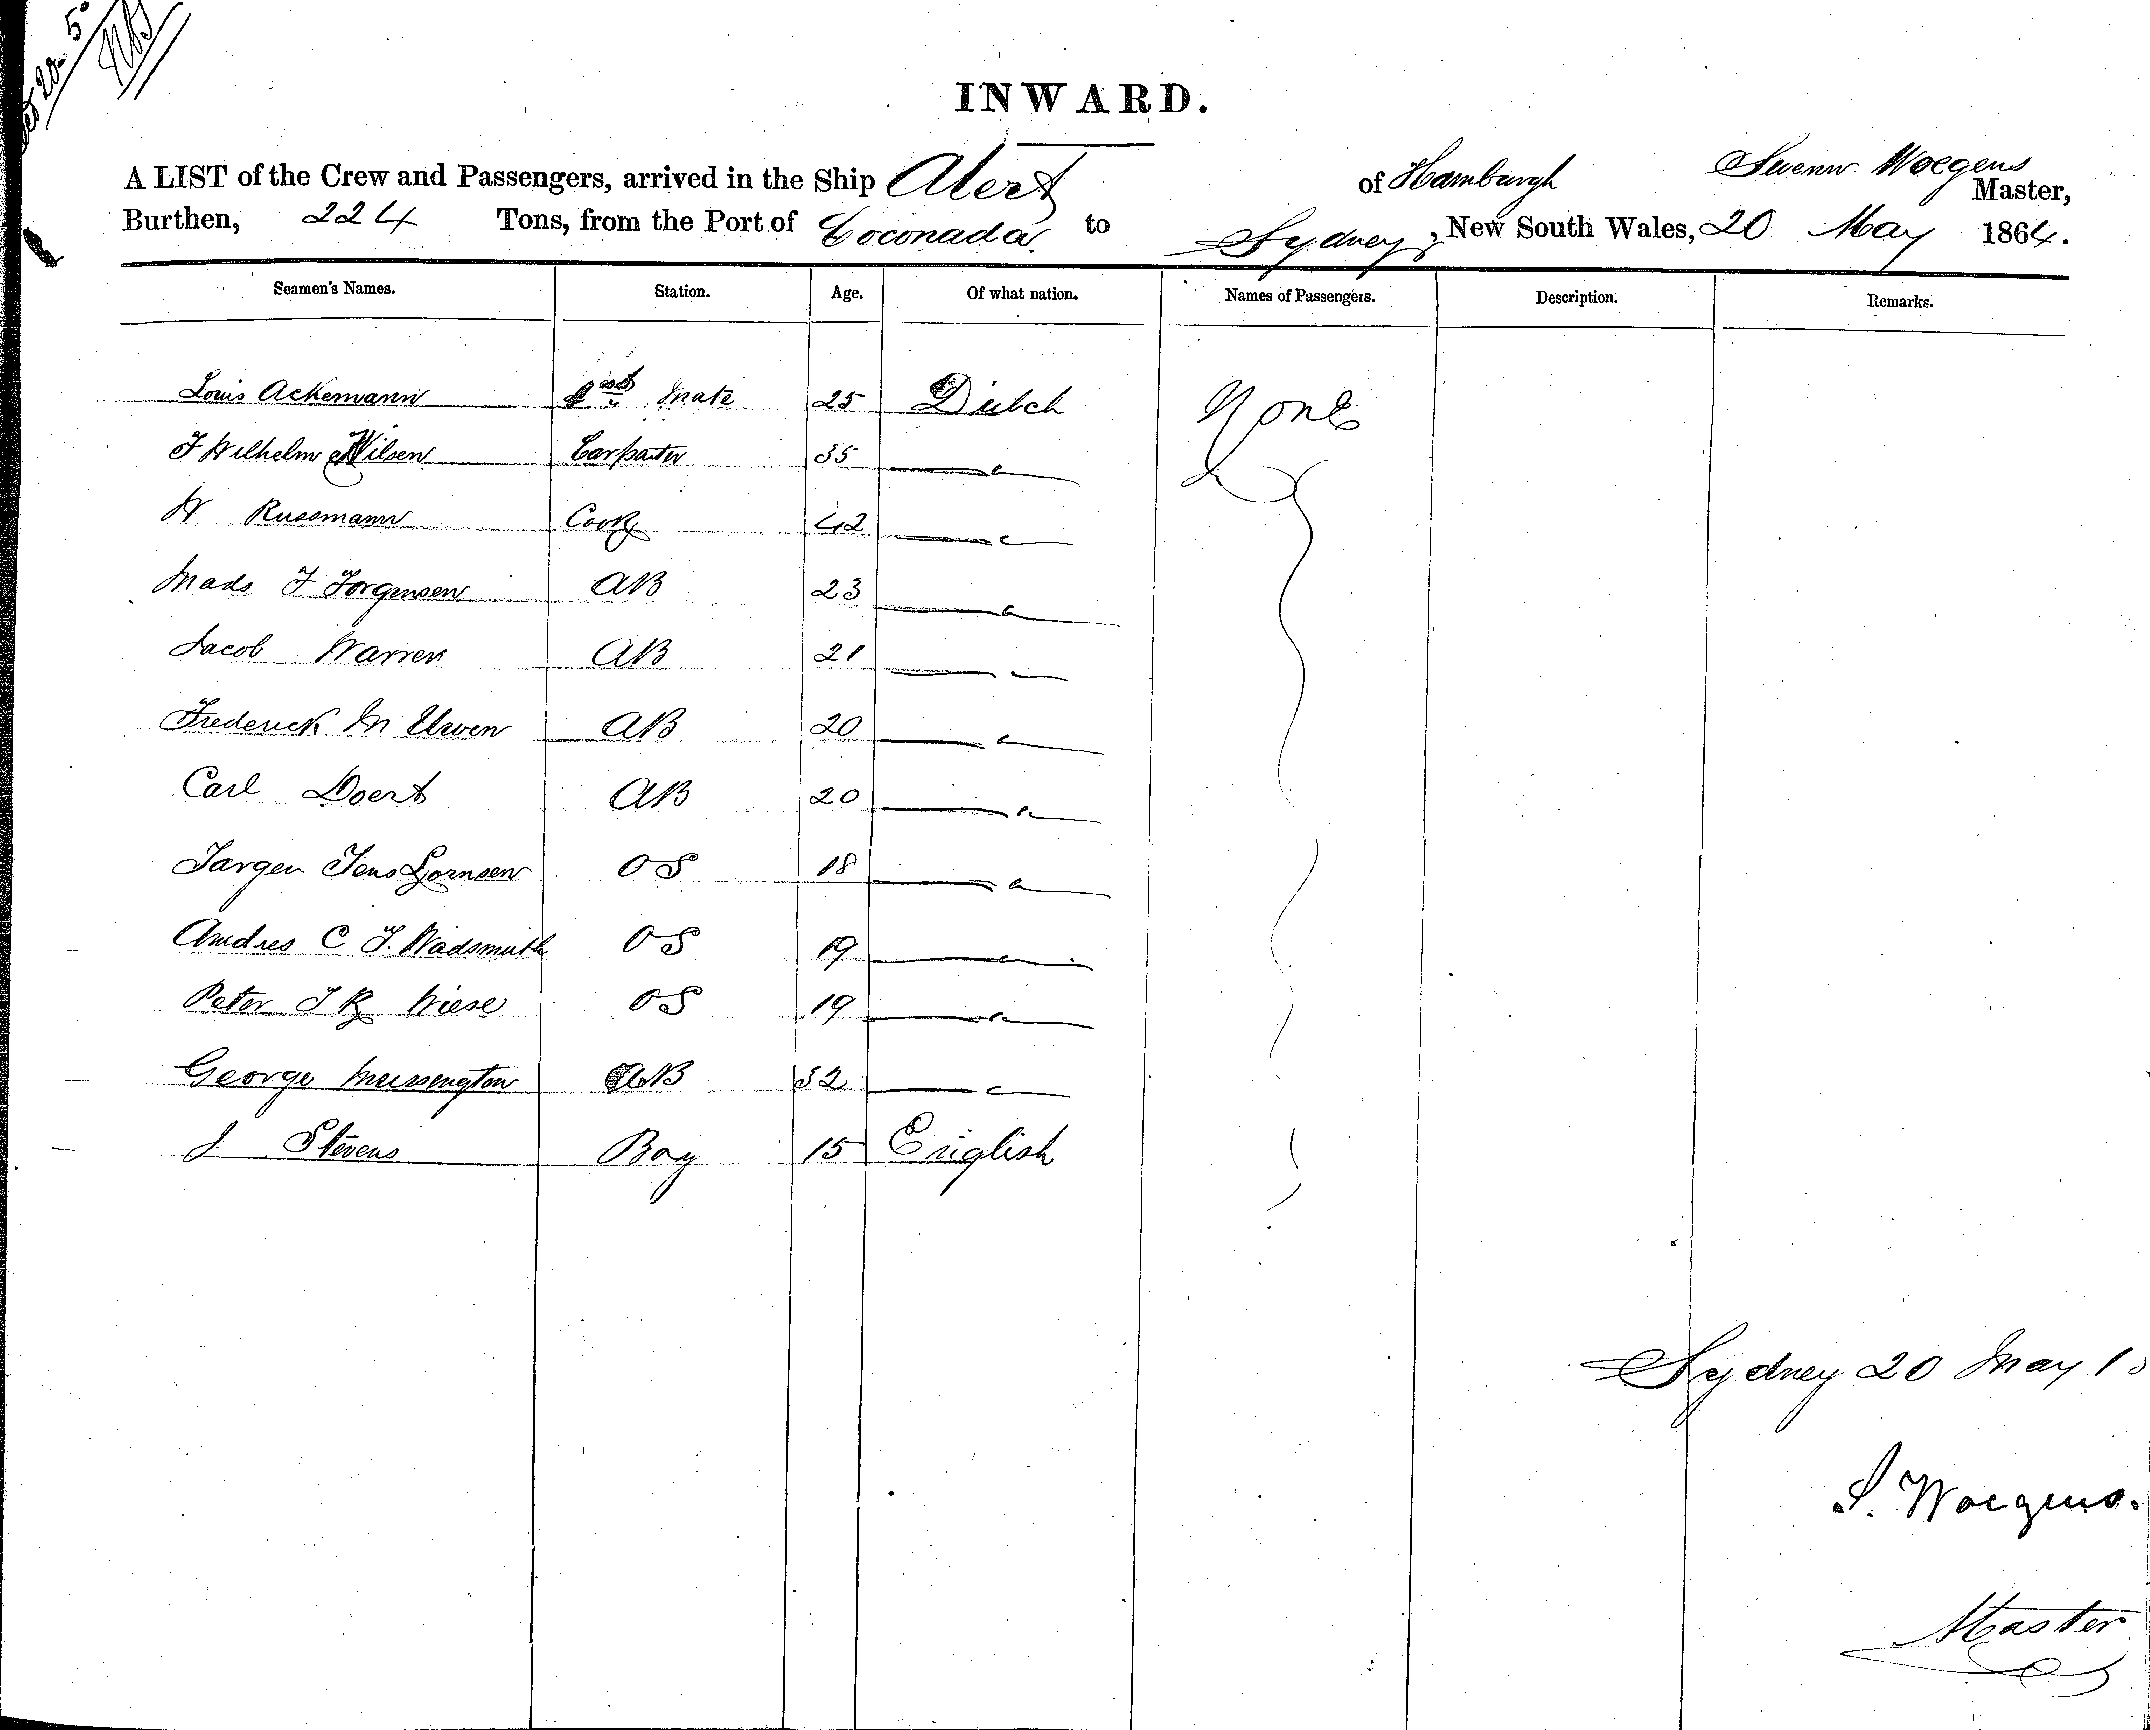 INWARD.
A LIST of the Crew and Passengers, arrived in the Ship Alert of Hamburgh Swenn Woegens Master,
Burthen, 224 Tons, from the Port of Coconada to Sydney, New South Wales, 20 May 1864.
Seamen's Names. Station. Age. Of what nation. Names of Passengers. Description. Remarks.
Louis Ackemann Mate 25 Dutch None
J Wilhelm Nilsen Carpater 35
W Russmann Cook 42
Mads J Jorgensen AB 23
Jacob Warren AB 21
Frederick M Urwen AB 20
Carl Doert AB 20
Jargen Jens Lornsen OS 18
Andres C J. Wadsmuth OS 19
Peter J R Wiese OS 19
George Mussengton AB 32
J Stevens Boy 15 English
Sydney 20 May
S. Woegens.
Master